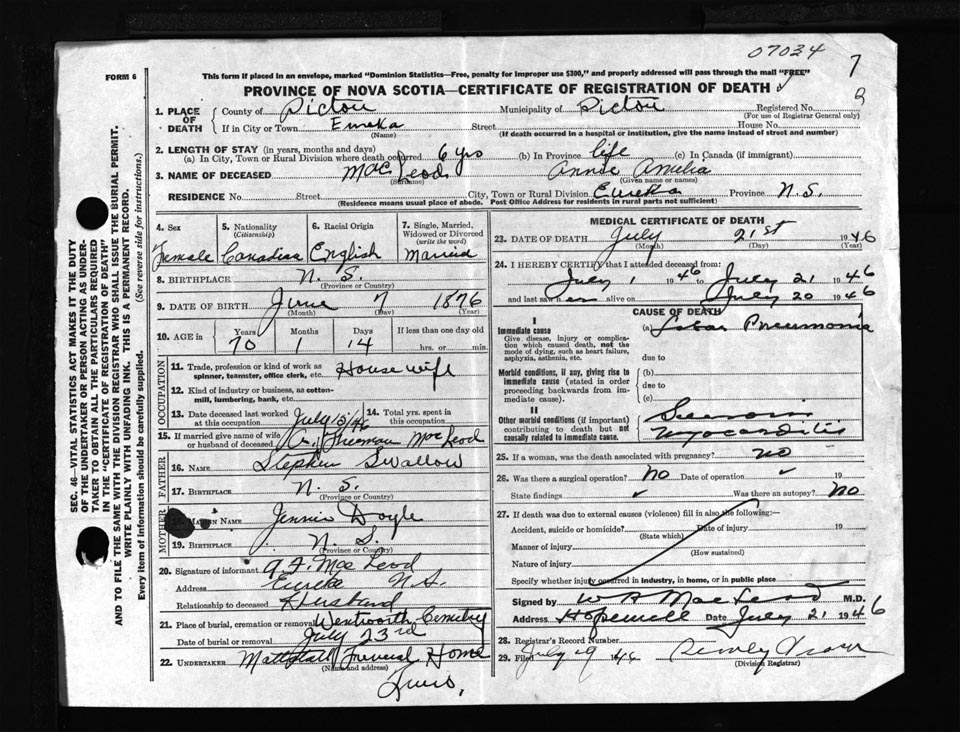 07034
7
FORM 6
This form if placed in an envelope, marked "Dominion Statistics—Free, penalty for improper use $300," and properly addressed will pass through the mail "FREE"
PROVINCE OF NOVA SCOTIA—CERTIFICATE OF REGISTRATION OF DEATH
1. PLACE OF DEATH County of Pictou Municipality of Pictou Registered No.
(For use of Registrar General only)
If in City or Town Eureka Street House No.
(Name) (If death occurred in a hospital or institution, give the name instead of street and number)
2. LENGTH OF STAY (in years, months and days)
(a) In City, Town or Rural Division where death occurred 6 yrs (b) In Province life (c) In Canada (if immigrant)
3. NAME OF DECEASED MacLeod Annie Amelia
(Surname) (Given name or names)
RESIDENCE No. Street City, Town or Rural Division Eureka Province N.S.
(Residence means usual place of abode. Post Office Address for residents in rural parts not sufficient)
4. Sex 5. Nationality (Citizenship) 6. Racial Origin 7. Single, Married, Widowed or Divorced (write the word)
Female Canadian English Married
8. BIRTHPLACE N.S.
(Province or Country)
9. DATE OF BIRTH June 7 1876
(Month) (Day) (Year)
10. AGE in Years Months Days If less than one day old
70 1 14 hrs. or min.
OCCUPATION
11. Trade, profession or kind of work as spinner, teamster, office clerk, etc. Housewife
12. Kind of industry or business, as cotton-mill, lumbering, bank, etc.
13. Date deceased last worked at this occupation July/5/46 14. Total yrs. spent in this occupation
15. If married give name of wife or husband of deceased Freeman MacLeod
FATHER
16. NAME Stephen Swallow
17. BIRTHPLACE N.S.
(Province or Country)
MOTHER
MAIDEN NAME Jennie Doyle
19. BIRTHPLACE N.S.
(Province or Country)
20. Signature of informant MacLeod
Address Eureka N.S.
Relationship to deceased Husband
21. Place of burial, cremation or removal Wentworth Cemetry
Date of burial or removal July 23rd
22. UNDERTAKER Mattatall Funeral Home
(Name and address)
Truro,
MEDICAL CERTIFICATE OF DEATH
23. DATE OF DEATH July 21st 1946
(Month) (Day) (Year)
24. I HEREBY CERTIFY that I attended deceased from:
July 1 1946 to July 21 1946
and last saw her alive on July 20 1946
CAUSE OF DEATH
I
Immediate cause (a) Lobar Pneumonia
Give disease, injury or complication which caused death, not the mode of dying, such as heart failure, asphyxia, asthenia, etc.
due to
Morbid conditions, if any, giving rise to immediate cause (stated in order proceeding backwards from immediate cause).
(b)
due to
(c)
II
Other morbid conditions (if important) contributing to death but not causally related to immediate cause.
Myocarditis
25. If a woman, was the death associated with pregnancy? No
26. Was there a surgical operation? No Date of operation 19
State findings Was there an autopsy? No
27. If death was due to external causes (violence) fill in also the following:—
Accident, suicide or homicide? Date of injury 19
(State which)
Manner of injury
(How sustained)
Nature of injury
Specify whether injury occurred in industry, in home, or in public place
Signed by W A MacLeod M.D.
Address Hopewell Date July 21 1946
28. Registrar's Record Number
29. Filed July 29 46
(Division Registrar)
SEC. 46—VITAL STATISTICS ACT MAKES IT THE DUTY
OF THE UNDERTAKER OR PERSON ACTING AS UNDERTAKER
TO OBTAIN ALL THE PARTICULARS REQUIRED
IN THE "CERTIFICATE OF REGISTRATION OF DEATH"
AND TO FILE THE SAME WITH THE DIVISION REGISTRAR WHO SHALL ISSUE THE BURIAL PERMIT.
WRITE PLAINLY WITH UNFADING INK. THIS IS A PERMANENT RECORD.
Every item of information should be carefully supplied. (See reverse side for instructions.)